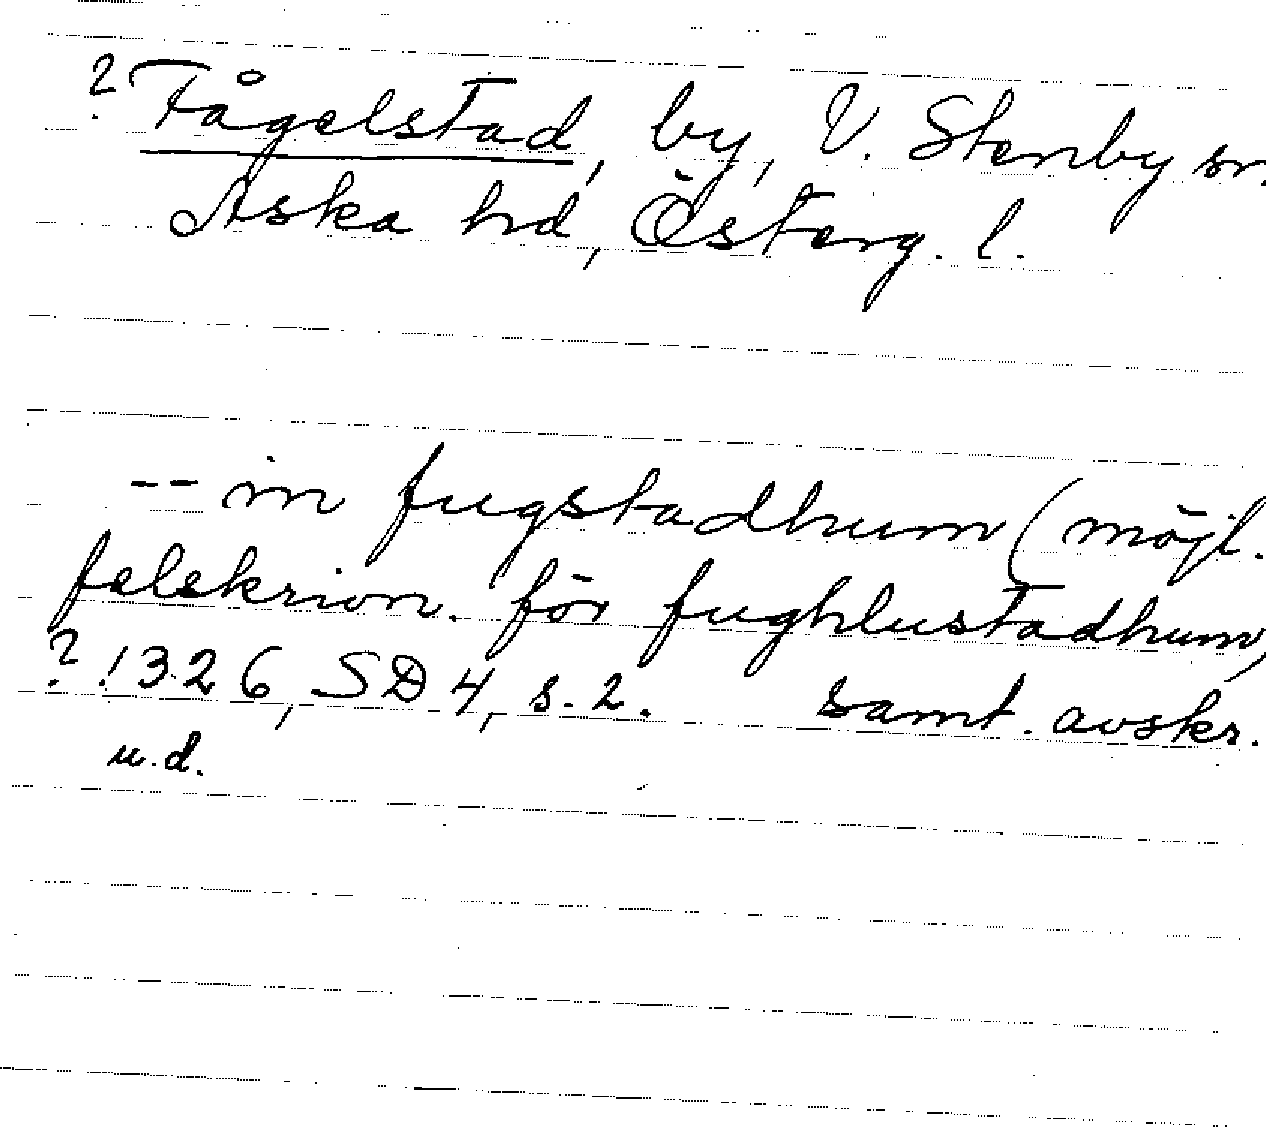 ? Fågelstad, by, V. Stenby sn.
Aska hd, Österg. l.
-- in fugstadhum (möjl.
felskrivn. för fughlustadhum,
? 1326, SD 4, s. 2. samt. avskr.
u.d.